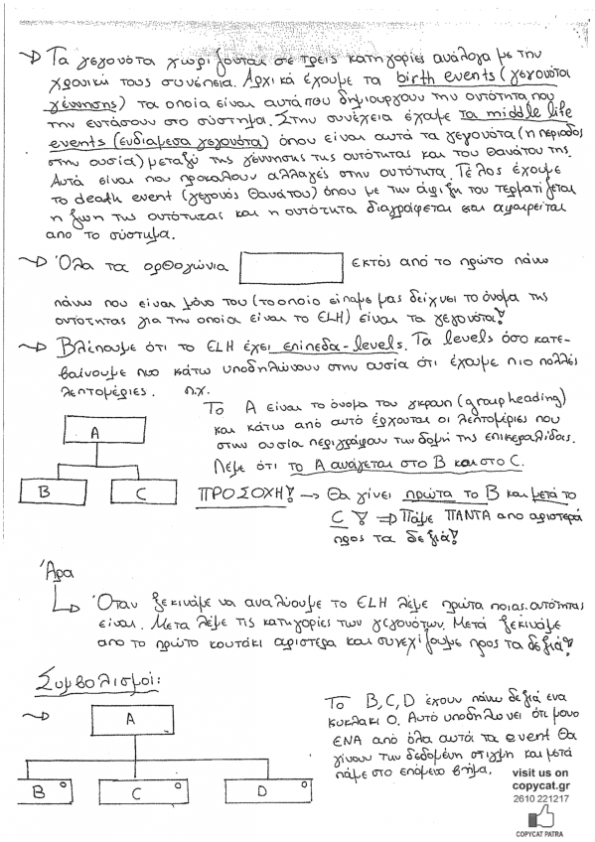 Τα γεγονότα χωρίζονται σε τρεις κατηγορίες ανάλογα με την
χρονική τους συνέπεια. Αρχικά έχουμε τα birth events (γεγονότα
γέννησης) τα οποία είναι αυτά που δημιουργουν την οντότητα που
την εντάσουν στο σύστημα. Στην συνέχεια έχουμε τα middle life
events (ενδιαμεσα γεγονότα) όπου είναι αυτά τα γεγονότα (η περίοδος
στην ουσία) μεταξύ της γέννησης της οντότητας και του θανάτου της.
Αυτά είναι που προκαλουν αλλαγές στην οντότητα. Τέλος έχουμε
το death event (γεγονός θανάτου) όπου με την άφιξη του τερματίζεται
η ζωή της οντότητας και η οντότητα διαγράφεται και αφαιρείται
απο το σύστημα.
Όλα τα ορθογώνια εκτός από το πρώτο πάνω
πάνω που είναι μόνο του (το οποίο είπαμε μας δείχνει το όνομα της
οντότητας για την οποία είναι το ELH) είναι τα γεγονότα!
Βλέπουμε ότι το ELH έχει επίπεδα-levels. Τα levels όσο κατε-
βαίνουμε πιο κάτω υποδηλώνουν στην ουσία ότι έχουμε πιο πολλές
λεπτομέριες. π.χ.
Το Α είναι το όνομα του γκρουπ (group heading)
και κάτω από αυτό έρχονται οι λεπτομέριες που
στην ουσία περιγράφουν την δομή της επικεφαλίδας.
Λέμε ότι το Α ανάγεται στο Β και στο C.
A
B C
ΠΡΟΣΟΧΗ! → Θα γίνει πρώτα το Β και μετά το
C! ⇒ Πάμε ΠΑΝΤΑ απο αριστερά
προς τα δεξιά!
Άρα
Όταν ξεκινάμε να αναλύουμε το ELH λέμε πρώτα ποιας οντότητας
είναι. Μετα λέμε τις κατηγορίες των γεγονότων. Μετά ξεκινάμε
απο το πρώτο κουτάκι αριστερα και συνεχίζουμε προς τα δεξιά!
Συμβολισμοί:
A
B C D
Το B, C, D έχουν πάνω δεξιά ενα
κυκλακι Ο. Αυτό υποδηλώνει ότι μονο
ΕΝΑ από όλα αυτά τα event θα
γίνουν την δεδομένη στιγμή και μετά
πάμε στο επόμενο βήμα.
visit us on
copycat.gr
2610 221217
COPYCAT PATRA